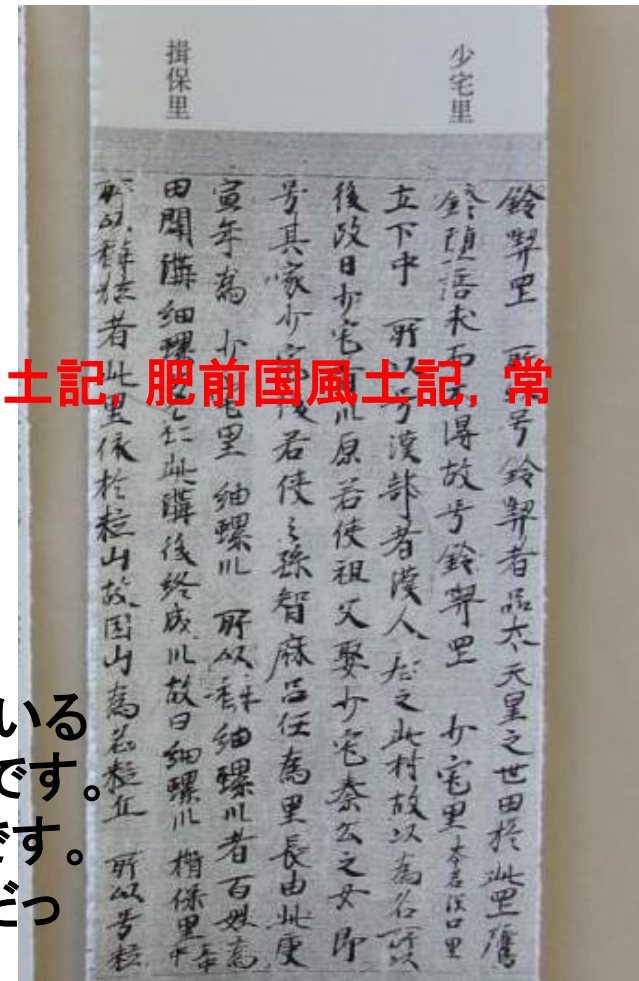 少宅里
揖保里
鈴喫里 所以号鈴喫者品太天皇之世田於此里鷹
鈴堕落求而不得故号鈴喫里 少宅里本名漢部里
土下中 所以号漢部者漢人居之此村故以為名所以
後改曰少宅者川原若使祖父娶少宅秦公之女即
号其家少宅後若使之孫智麻呂任為里長由此庚
寅年為少宅里 細螺川 所以称細螺川者百姓為
田闢溝細螺多在此溝後終成川故曰細螺川 揖保里土中中
所以称粒者此里依於粒山故因山為名粒丘 所以号粒
土記, 肥前国風土記, 常
いる
です。
です。
だっ